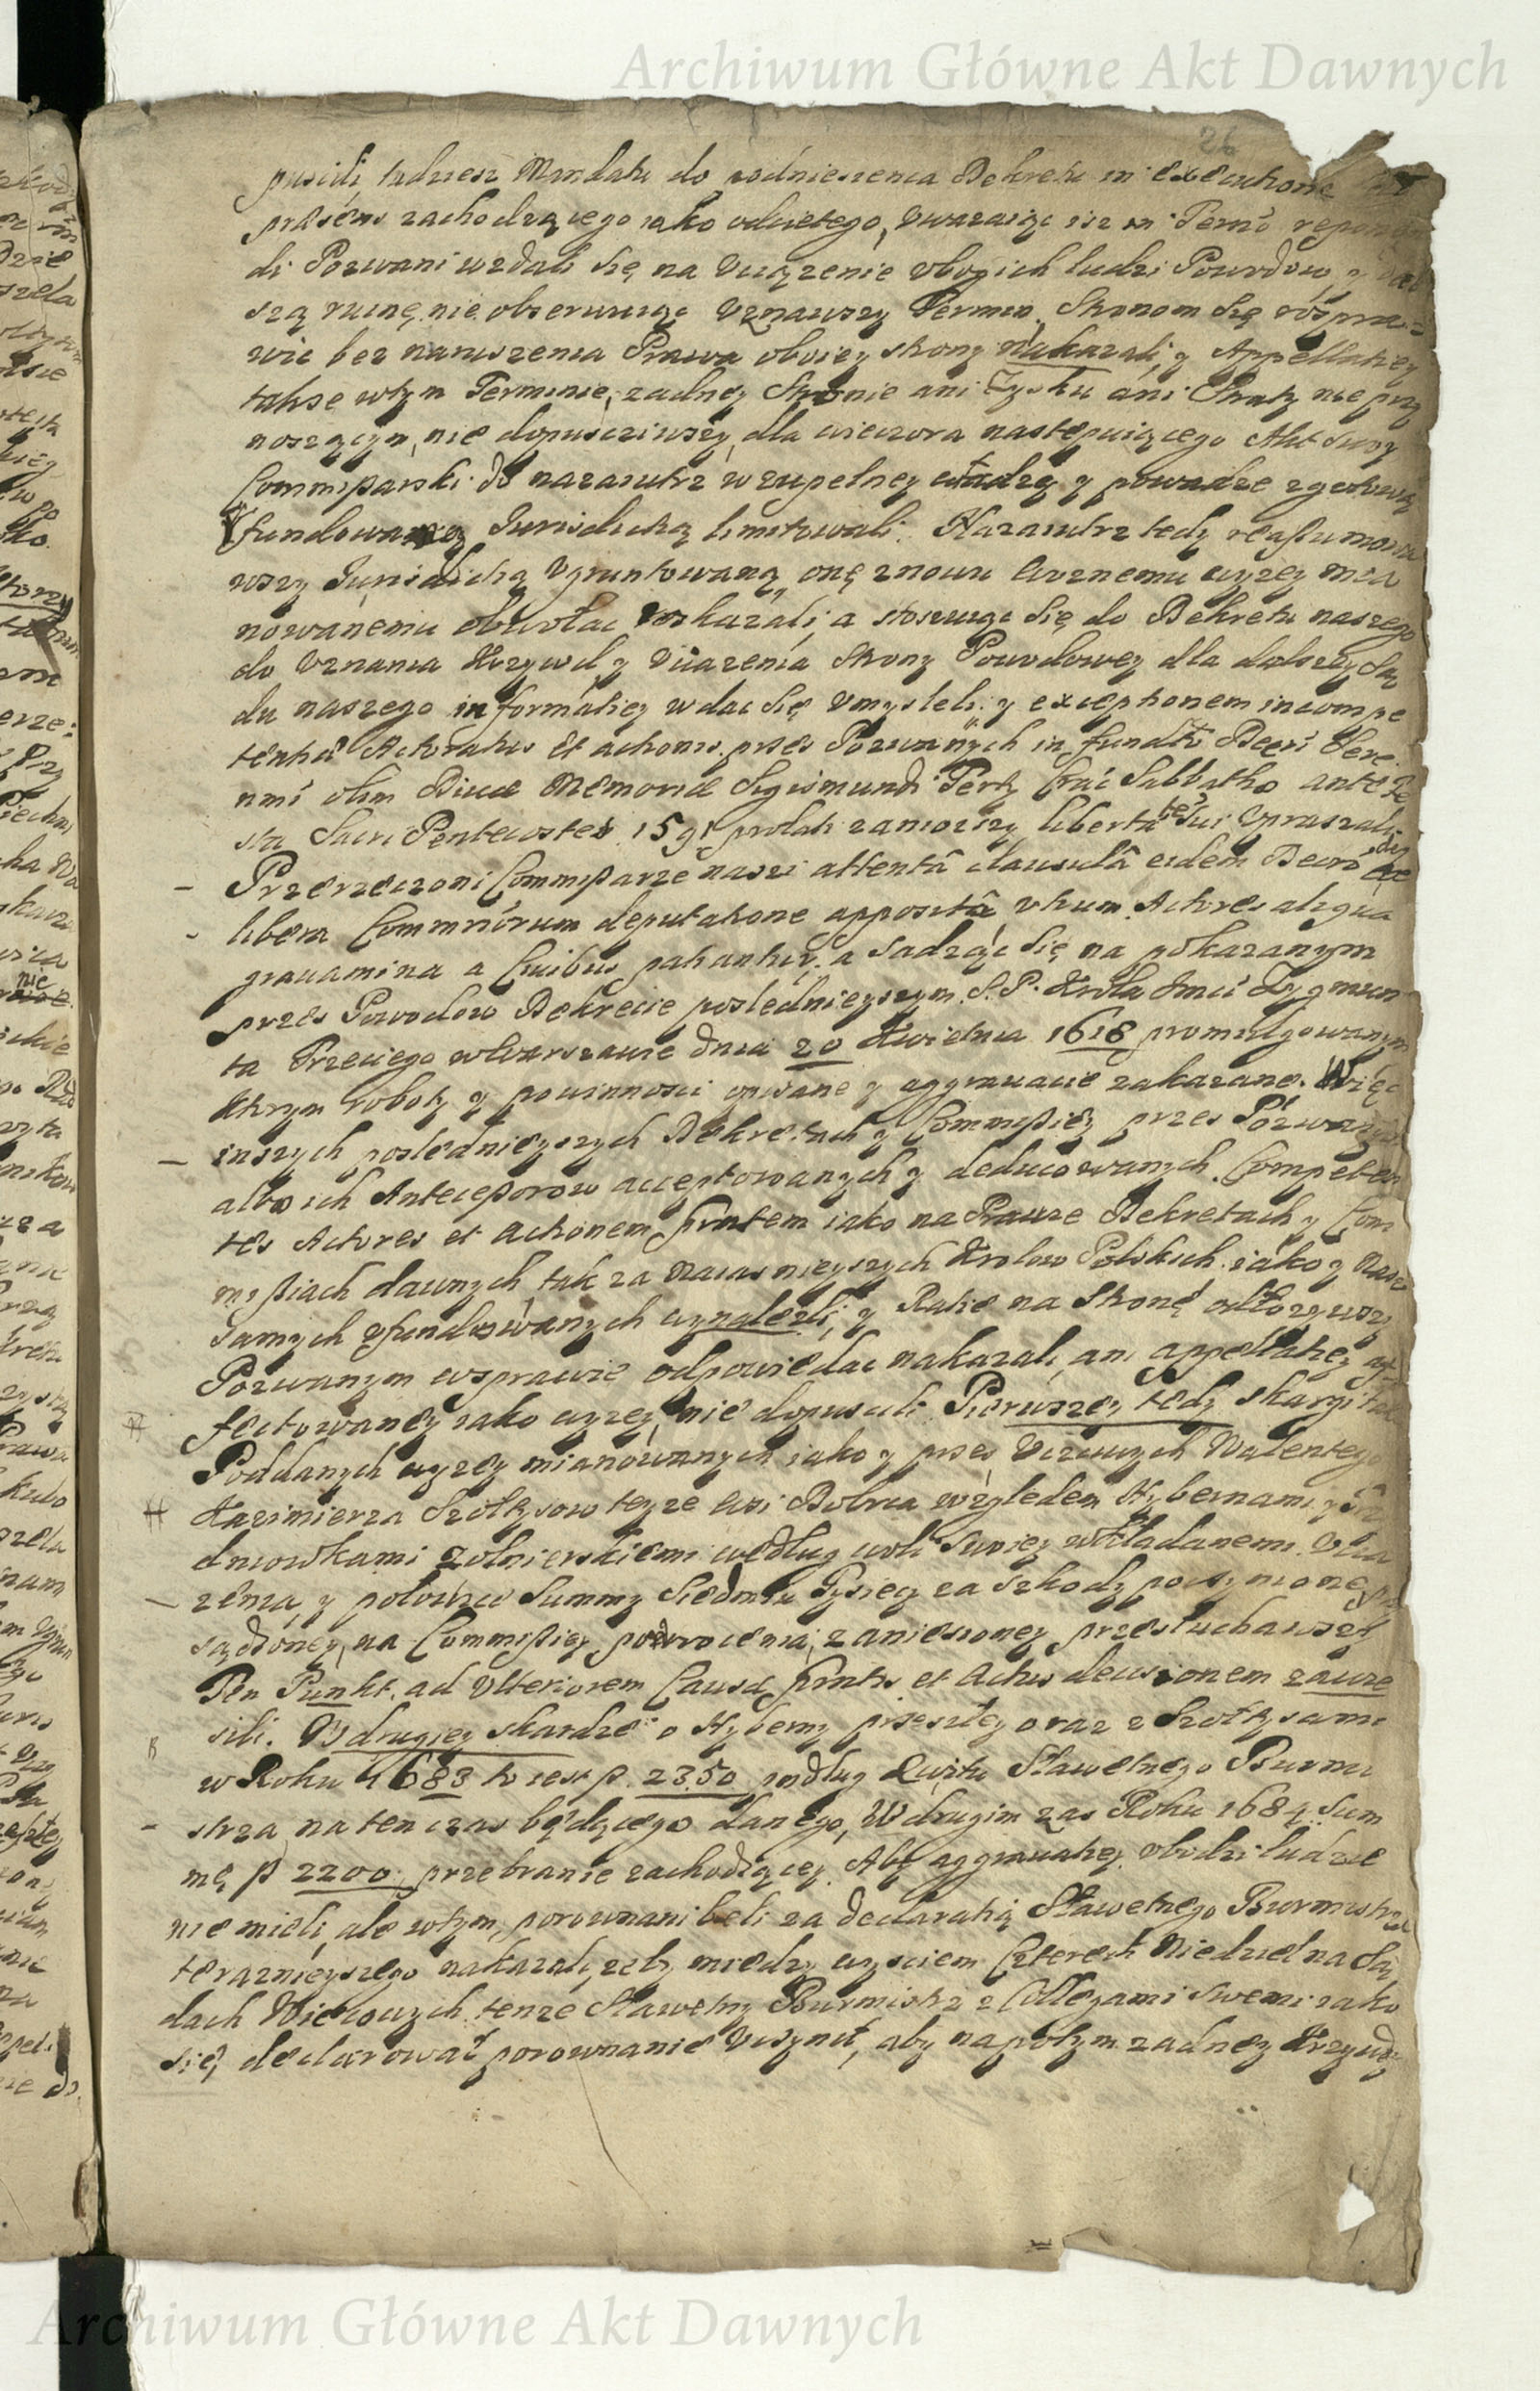 Archiwum Główne Akt Dawnych
26
puscili, tudziesz Mandatu do podniesienia Dekretu in executione
præsens zachodzącego iako odcietego, Uwazaiąc isz in Termo
di Pozwani wzdali się na Uciązenie Ubogich ludzi Powodow, y
szą ruinę nie obserwuiąc Uznawszy Termin, Stronom Się rospra=
wic bez naruszenia Prawa oboiey strony nakazali, y Appellatiey
takse wtym Terminie, zadney Stronie ani Zysku ani Straty nie przy
noszącym, nie dopusciwszy, dla wieczora nastepuiącego Akt Swoy
Commissarski do nazaiutrz w zupełney władzy y powadze zgotową
fundowaney Jurisdictią limitowali. Nazaiutrz tedy reassumowa
wszy Jurisdictią Ugruntowaną, onę znowu Woznemu wyzey mia
nowanemu obwołac roskazali, a stosuiąc Się do Dekretu naszego
do Uznania Krzywd y Uciązenia Strony Powodowey dla dalszey Są
du naszego informatiey wdac Się Umysleli: y exceptionem incompe
tentiæ Actoratus et actionis przes Pozwanych in fundto Decri Sere
nmi olim Divæ Memoriæ Sigismundi Tertij Crac Sabbatho ante Fe
sta Sacri Pentecostes 1591 prolati zaniozszy libertatẽ Sui Upraszali.
– Przerzeczoni Commissarze naszi attentâ clausulâ eidem Decro de
- libera Commriorum deputatione appositâ Utrum Actores aliqua
gravamina a Civibus patiantur, a Sadząc Się na pokazanym
przes Powodow Dekrecie posledniejszym S. P. Krola Jmci Zygmun
ta Trzeciego w Warszawie dnia 20 Kwietnia 1618 promulgowanym
Ktorym roboty y powinnosci opisane y aggravacie zakazane. Więc
– inszych posledniejszych Dekretach y Commissiey przes Pozwanych
albo ich Antecessorow acceptowanych y deducowanych. Competen
tes Actores et Actionem prntem iako na Prawie Dekretach y Com
missiach dawnych, tak za Naiasnieyszych Krolow Polskich iako y Nas
samych Ufundowanych wynalezli, y Ratie na Stronę odłozywszy
Pozwanym wsprawie odpowiedac nakazali, ani appellatiey af=
# fectowaney iako wyzey, nie dopuscili. Pierwszey tedy skargi tak
Poddanych wyzey mianowanych iako y przes Uczciwych Walentego
# Kazimierza Szołtysow teyze Wsi Bobrca względem Hybernami y
dniowkami zołnierskiemi według woli Swoiey wkładanemi Ucią
– zenia, y połowice Summy Siedmiu Tysięcy za Szkody poczynione
sądzoney, na Commissiey powrocenia, zaniesioney przesłuchawszy
Ten Punkt. ad Ulteriorem Causæ prntis et Actus decisionem zawie
sili. W drugiey skardze o Hyberny przeszłey oraz z Szołtysami
w Roku 1683 to iest p 2350 podług Qwitu Sławetnego Burmi
- strza na ten czas będącego danego, W drugim zas Roku 1684 Sum
mę p 2200 przebranie zachodzącey. Aby aggravatiey ubodzi ludzie
nie mieli, ale wtym porownani beli za declaratią Sławetnego Burmistrza
terazniejszego nakazali, zeby miedzy wysciem Czterech Niedziel na Są
dach Wieiowych tenze Sławetny Burmistrz z Collegami Swemi iako
się declarował porownanie Uczynił, aby napotym zadney Krzywdy
Archiwum Główne Akt Dawnych